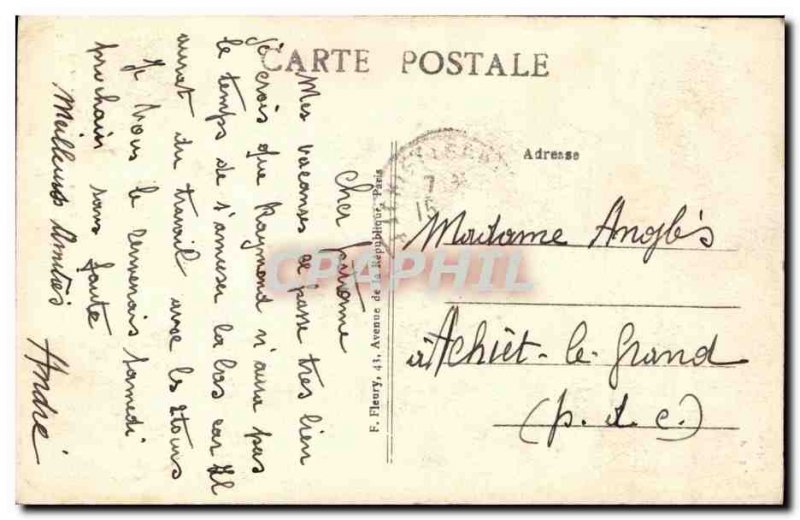 CARTE POSTALE
Cher
Mes vacances se passe tres bien
je crois que Raymond n'aura pas
le temps de s'amuser la bas car il
aurat du travail avec les
Je vous le ramenerais samedi
prochain sans faute
Meilleures Amitiés
André
F. Fleury, 43, Avenue de la République, Paris
Adresse
7
15
Madame Anglès
à Achiet-le-Grand
(p. d. c.)
CPAPHIL